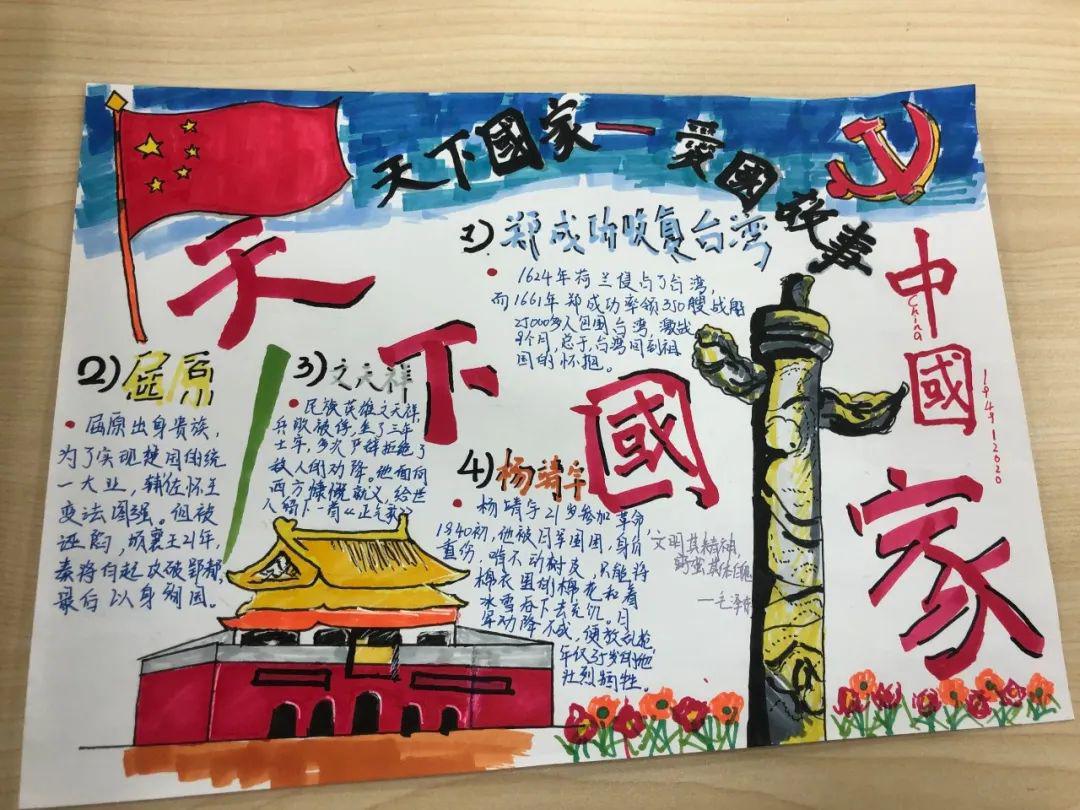 天下國家—愛國故事
天
下
國
家
中國
China
1949—2020
1)郑成功收复台湾
1624年荷兰侵占了台湾,
而1661年郑成功率领350艘战船
25000多人包围台湾,激战
9个月,总于,台湾回到祖
国的怀抱。
2)屈原
屈原出身贵族,
为了实现楚国的统
一大业,辅佐怀王
变法图强。但被
诬陷,顷襄王21年,
秦将白起攻破郢都,
最后以身殉国。
3)文天祥
民族英雄文天祥,
兵败被俘,坐了三年
土牢,多次严辞拒绝了
敌人的劝降。他面向
西方慷慨就义,给世
人留下一首《正气歌》
4)杨靖宇
杨靖宇21岁参加革命,
1940初,他被日军围困,身负
重伤,啃不动树皮,只能将
棉衣里的棉花和着
冰雪吞下去充饥。日
军劝降不成,便放乱枪,
年仅35岁的他
壮烈牺牲。
文明其精神,
野蛮其体魄
—毛泽东